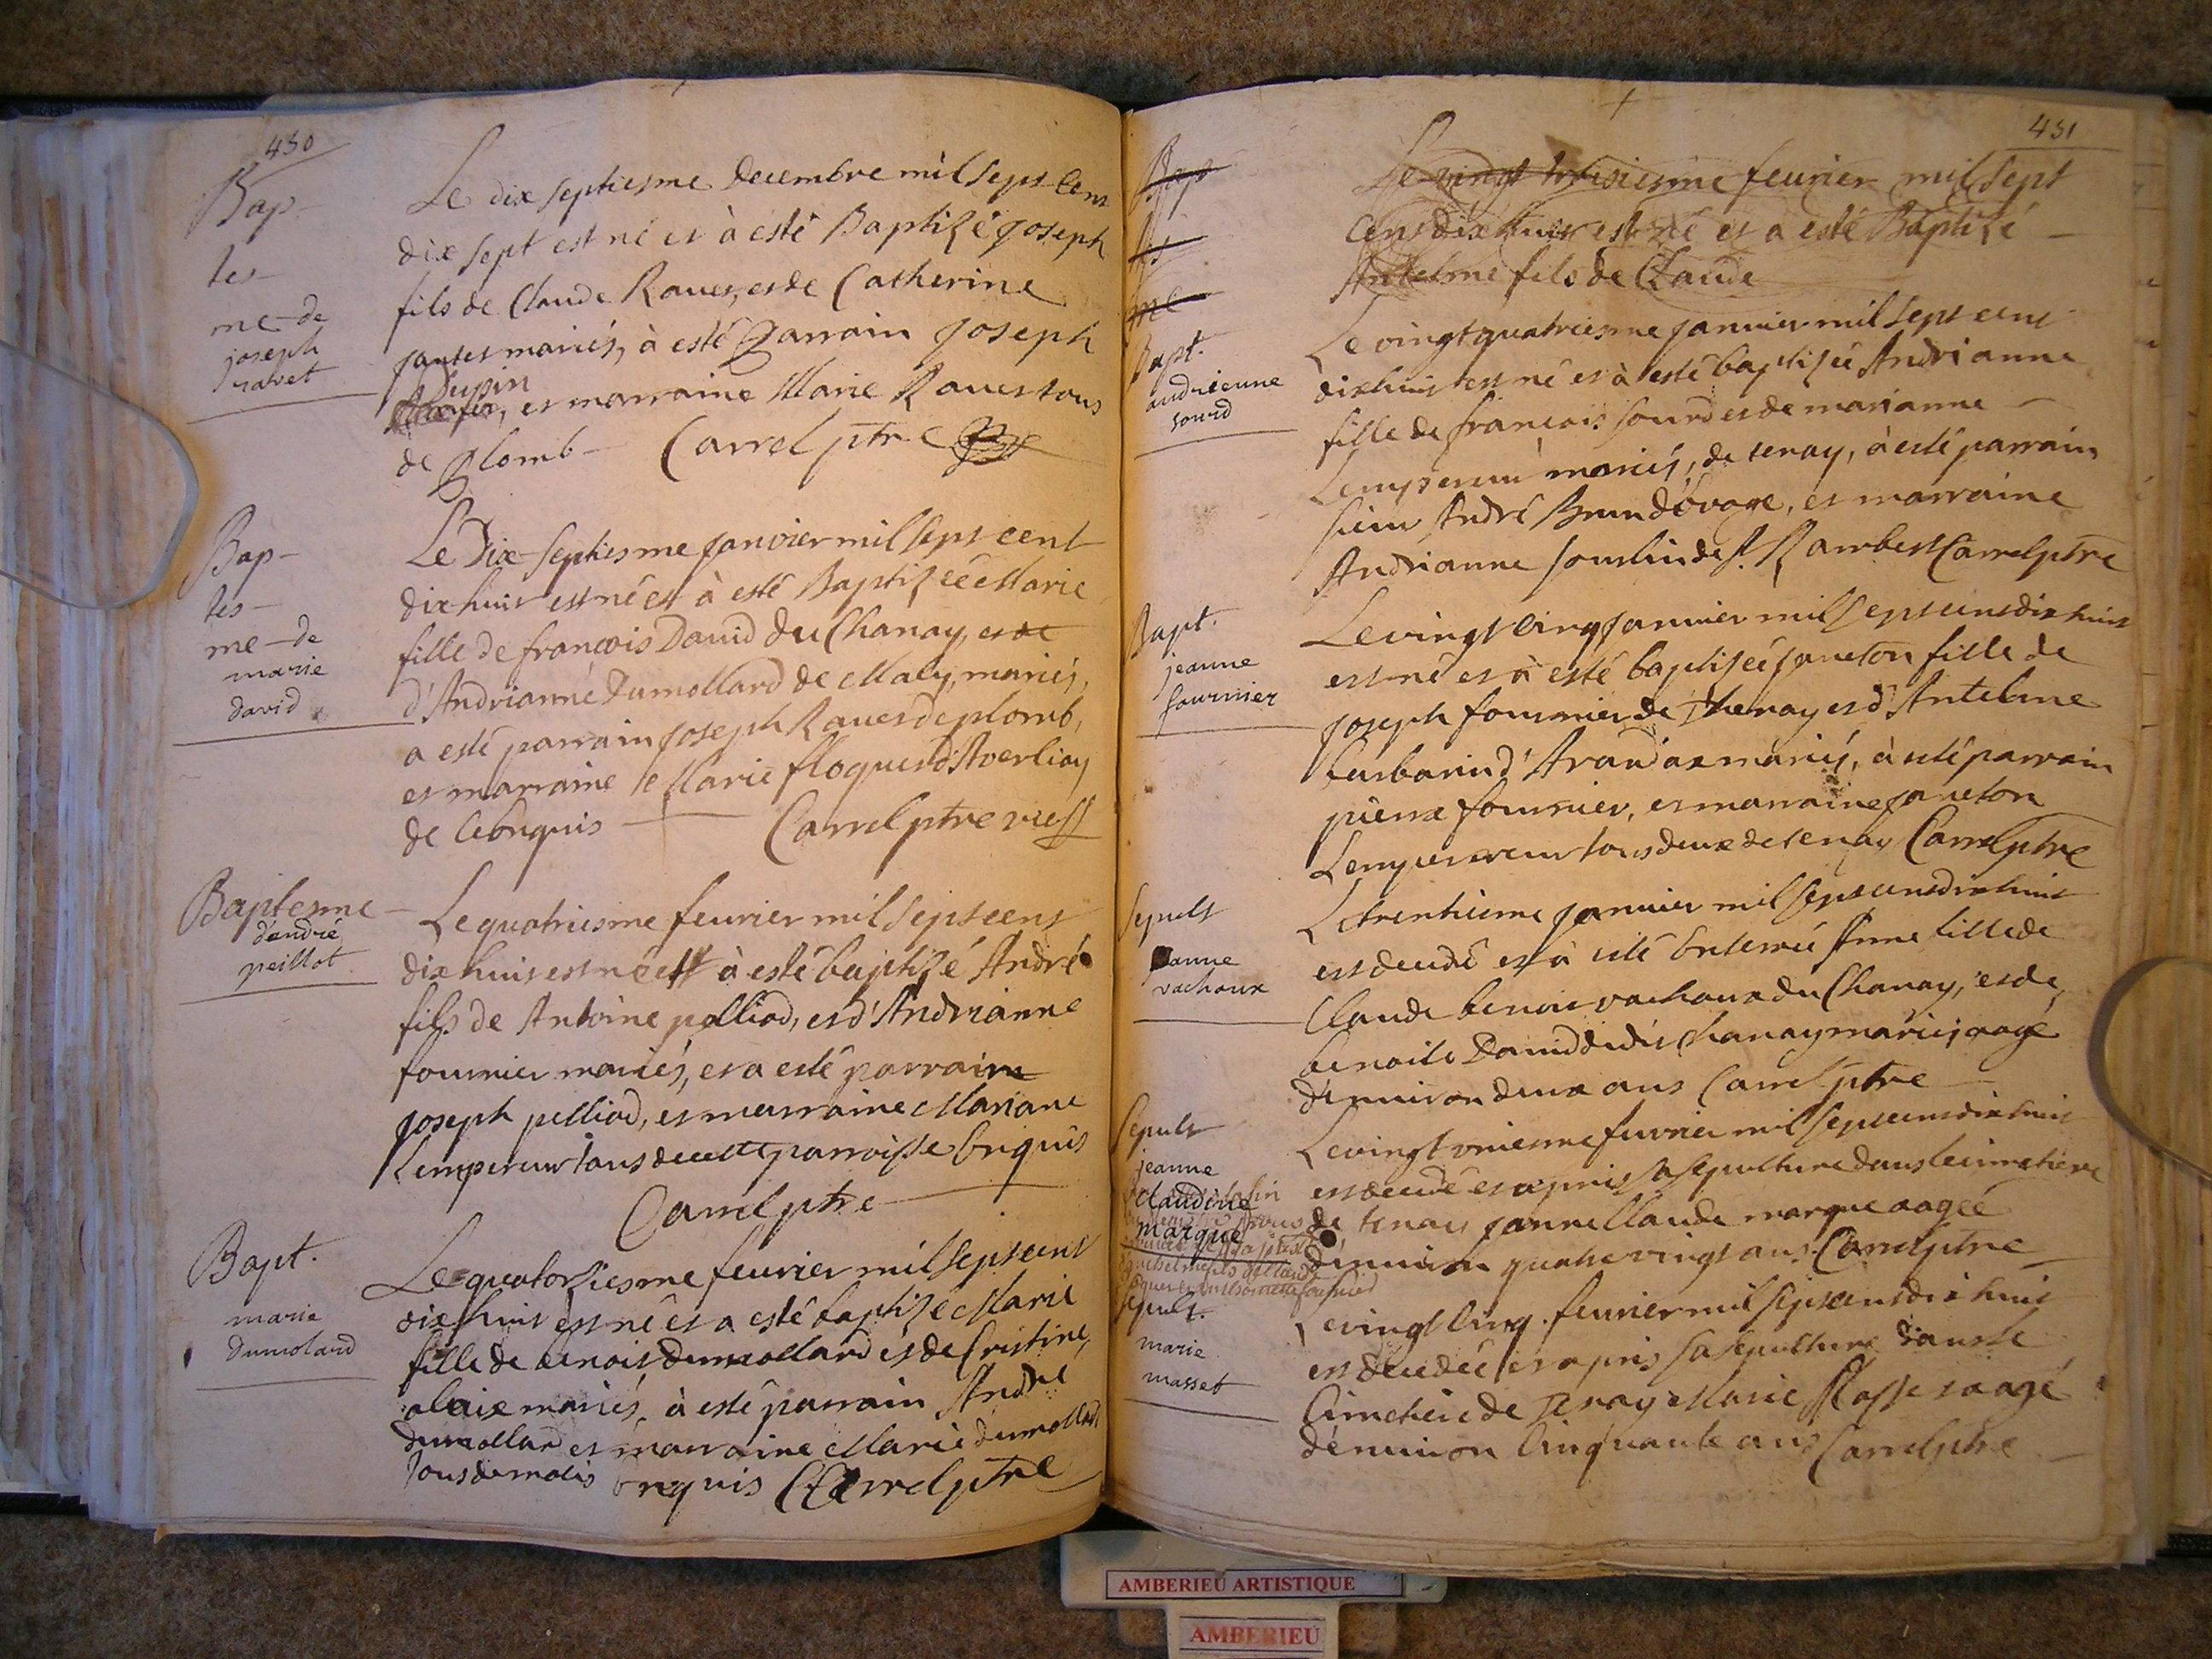 430
Bap-
tes-
me-de
joseph
ravet
Le dix septiesme decembre mil sept cent
dix sept est né et à esté Baptizé joseph
fils de Claude Ravet, et de Catherine
mariés, à esté parrain joseph
Dupin
et marraine Marie Ravet tous
de plomb - Carrel ptre
Bap-
tes-
me-de
marie
david
Le Dix-septiesme janvier mil sept cent
dix huit est né et à esté Baptizée Marie
fille de francois David du Chanay, et de
d'Andrianne Dumollard de Maly, mariés,
a esté parrain joseph Ravet de plomb,
et marraine Marie floquet d'Averliay
de ce Enquis Carrel ptre
Baptesme
d'andré
peillot
Le quatriesme feurier mil sept cent
dix huit est né et à esté baptizé André
fils de Antoine pelliod, et d'Andrianne
fournier mariés, et a esté parrain
joseph pelliod, et marraine Mariane
Lempereur tous de cette parroisse Enquis
Carrel ptre
Bapt.
marie
dumolard
Le quatorziesme feurier mil sept cent
dix huit est né et a esté baptizé Marie
fille de benoit Dumollard et de Cristine
alaix mariés, à esté parrain André
dumollard et marraine Marie dumollard
tous de malis Enquis Carrel ptre
431
Bap
tes
me
Le vingt troisiesme feurier mil sept
Cent dix huit est né et a esté Baptizé
Antelme fils de Claude
Bapt.
andrienne
sourd
Le vingt quatriesme janvier mil sept cent
dix huit est né et à esté baptizée Andrianne
fille de francois sourd et de marianne
Lempereur mariés, de tenay, à esté parrain
sieur André Brun d'Evoge, et marraine
Andrianne de St. Rambert Carrel ptre
Bapt.
jeanne
fournier
Le vingt cinq janvier mil sept cent dix huit
est né et à esté baptizée janeton fille de
joseph fournier de Thenay et d'Antelme
d'Arandax mariés, à esté parrain
pierre fournier, et marraine janeton
Lempereur tous deux de tenay Carrel ptre
Sepult
anne
vachoux
Le trentiesme janvier mil sept cent dix huit
est decedé et à esté Enterrée Anne fille de
Claude benoit vachoux du Chanay, et de
benoite David dudit Chanay mariés, aagé
d'environ deux ans Carrel ptre
Sepult
jeanne
claudine
marque
Le vingt uniesme feuvrier mil sept cent dix huit
est decedé et a pris sa sepulture dans le cimetiere
de tenay janne Claude marque aagée
d'environ quatre vingt ans. Carrel ptre
Sepult.
marie
masset
Le vingt cinq feurier mil sept cent dix huit
est decedée et a pris sa sepulture dans le
Cimetiere de Tenay Marie Masset aagé
d'environ Cinquante ans Carrel ptre
AMBERIEU ARTISTIQUE
AMBERIEU